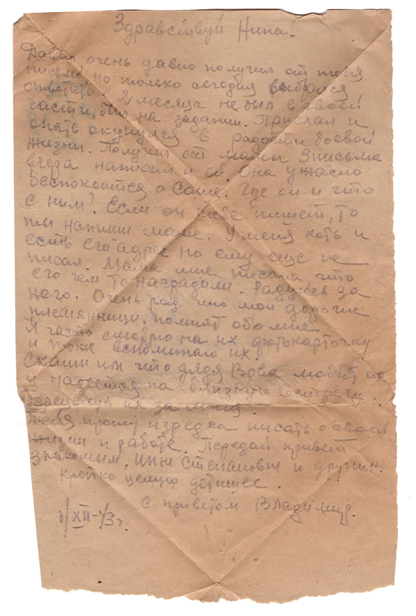 Здравствуй Нина.
Давно очень давно получил от тебя
письмо, но только сегодня
ответить. 2 месяца не был в своей
части, был на задании. Приехал и
опять окунулся в радости боевой
жизни. Получил от мамы 3 письма
вчера написал и ей. Она ужасно
беспокоится о Саше. Где он и что
с ним? Если он тебе пишет, то
ты напиши маме. У меня хоть и
есть его адрес но ему еще не
писал. Мама мне писала что
его чем то наградили. Радуюсь за
него. Очень рад что мои дорогие
племянницы, помнят обо мне.
Я часто смотрю на их фотокарточку
и тоже вспоминаю их.
Скажи им что дядя Вова любит их
и надеется на близкую встречу.
их за меня
Тебя прошу изредка писать о своей
жизни и работе. Передай привет
знакомым, Инне Степановне и другим.
Крепко целую детишек.
С приветом Владимир.
1/XII-43г.